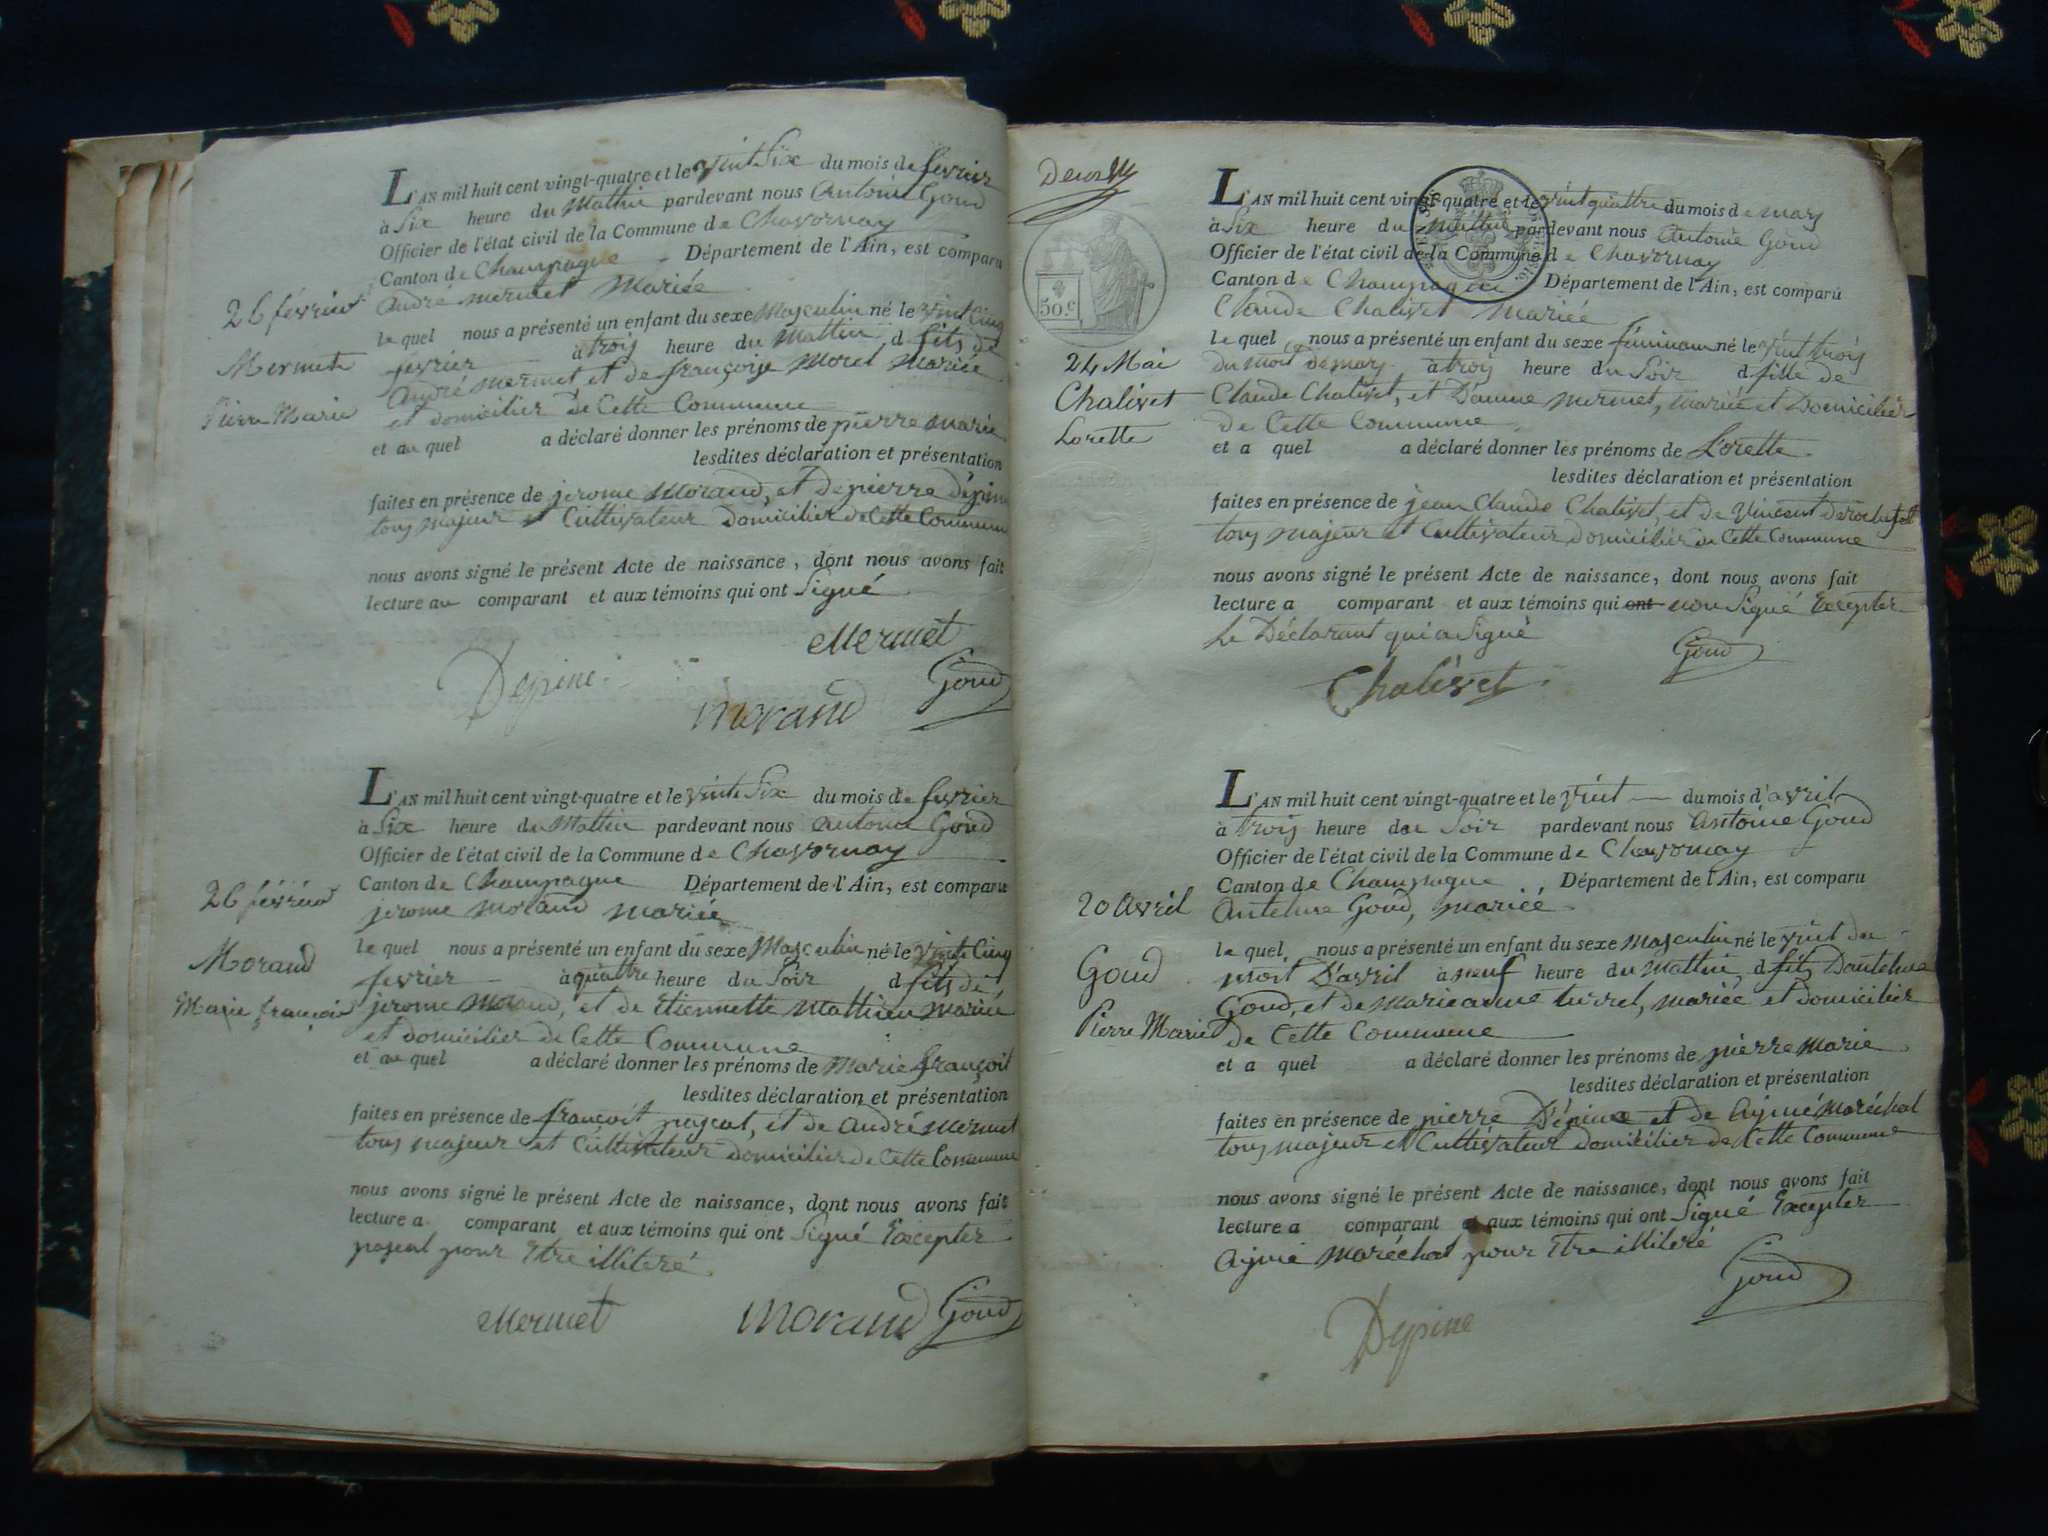 L'AN mil huit cent vingt-quatre et le vint Six du mois de fevrier
à Six heure du Mattin pardevant nous Antoine Goud
Officier de l'état civil de la Commune de Chavornay
Canton de Champagne Département de l'Ain, est comparu
André mermet Mariée
le quel nous a présenté un enfant du sexe Masculin né le vint Cinq
fevrier à trois heure du Mattin d fils de
André mermet et de françoise Morel Mariée
et domicilier de Cette Commune
et au quel a déclaré donner les prénoms de pierre marie
lesdites déclaration et présentation
faites en présence de jerome Morand, et de pierre Dépine
tous majeur et Cultivateur domicilier de Cette Commune
nous avons signé le présent Acte de naissance, dont nous avons fait
lecture au comparant et aux témoins qui ont Signé
26 février
Mermet
Pierre Marie
Mermet
Depine
morand
Goud
L'AN mil huit cent vingt-quatre et le vint Six du mois de fevrier
à Six heure du Mattin pardevant nous Antoine Goud
Officier de l'état civil de la Commune de Chavornay
Canton de Champagne Département de l'Ain, est comparu
jerome morand mariée
le quel nous a présenté un enfant du sexe Masculin né le vint Cinq
fevrier à quattre heure du Soir d fils de
jerome Morand, et de Etiennette Mathieu Mariée
et domicilier de Cette Commune
et au quel a déclaré donner les prénoms de Marie françois
lesdites déclaration et présentation
faites en présence de françois pascal, et de André Mermet
tous majeur et Cultivateur domicilier de Cette Commune
nous avons signé le présent Acte de naissance, dont nous avons fait
lecture a comparant et aux témoins qui ont Signé Excepter
pascal pour Etre illiteré
26 février
Morand
Marie françois
Mermet morand Goud
50.c
L'AN mil huit cent vingt-quatre et le vint quattre du mois de mars
à Six heure du Mattin pardevant nous Antoine Goud
Officier de l'état civil de la Commune de Chavornay
Canton de Champagne Département de l'Ain, est comparu
Claude Chalivet mariée
le quel nous a présenté un enfant du sexe féminam né le vint trois
du mois de mars à trois heure du Soir d fille de
Claude Chalivet, et D'anne mermet, mariée et Domicilier
de Cette Commune
et a quel a déclaré donner les prénoms de Lorette
lesdites déclaration et présentation
faites en présence de jean Claude Chalivet, et de Vincent
tous majeur et Cultivateur domicilier de Cette Commune
nous avons signé le présent Acte de naissance, dont nous avons fait
lecture a comparant et aux témoins qui ont non Signé Excepter
Le Déclarant qui a Signé
24 Mai
Chalivet
Lorette
Goud
Chalivet
L'AN mil huit cent vingt-quatre et le vint du mois d'avril
à trois heure du Soir pardevant nous Antoine Goud
Officier de l'état civil de la Commune de Chavornay
Canton de Champagne Département de l'Ain, est comparu
Antelme Goud, mariée
le quel nous a présenté un enfant du sexe masculin né le vint du
mois D'avril à neuf heure du Mattin, d fils Dantelme
Goud, et de marie anne turrel, mariée et domicilier
de Cette Commune
et a quel a déclaré donner les prénoms de pierre marie
lesdites déclaration et présentation
faites en présence de pierre Dépine et de Aimé Maréchal
tous majeur et Cultivateur domicilier de Cette Commune
nous avons signé le présent Acte de naissance, dont nous avons fait
lecture a comparant et aux témoins qui ont Signé Excepter
Aimé Maréchal pour Etre illiteré
20 Avril
Goud
Pierre Marie
Goud
Depine